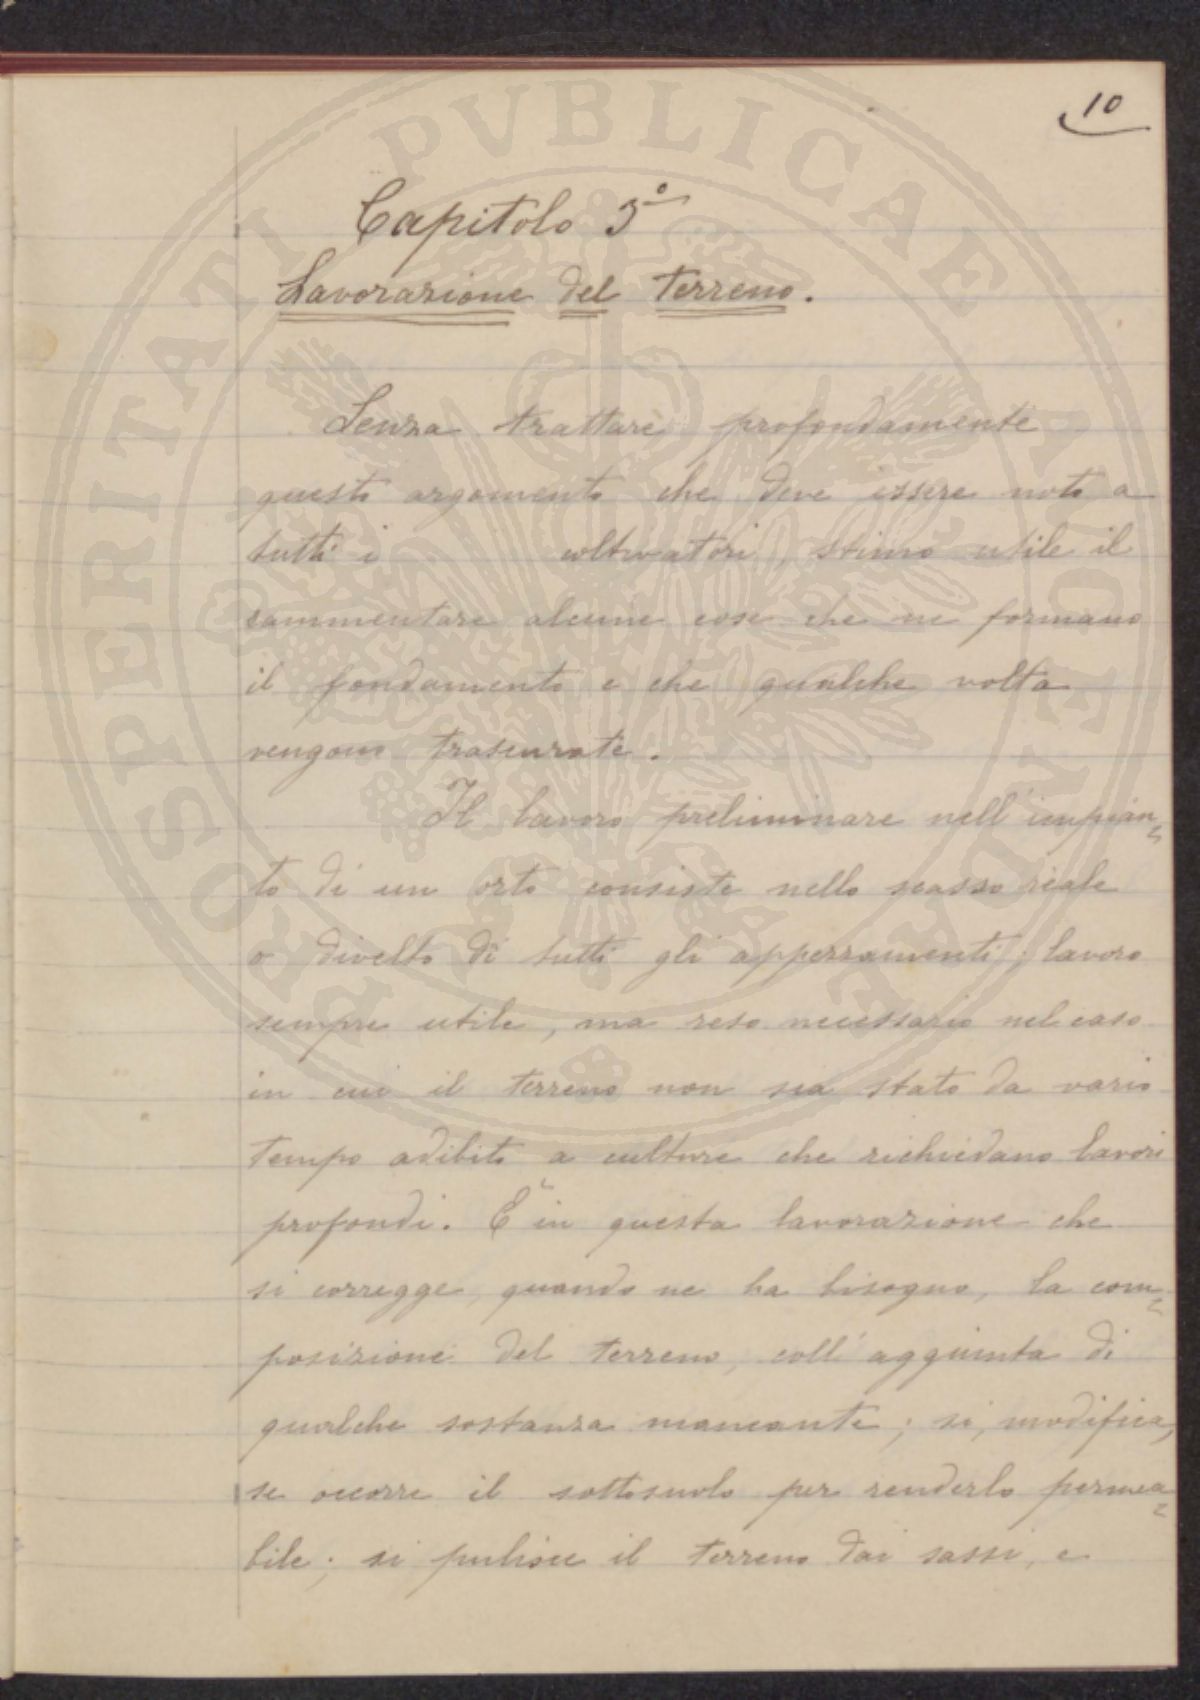 10
Capitolo 3°
Lavorazione del terreno.
Senza trattare profondamente
questo argomento che deve essere noto a
tutti i coltivatori, stimo utile il
rammentare alcune cose che ne formano
il fondamento e che qualche volta
vengono trascurate.
Il lavoro preliminare nell'impian=
to di un orto consiste nello scasso reale
o divelto di tutti gli appezzamenti; lavoro
sempre utile, ma reso necessario nel caso
in cui il terreno non sia stato da vario
tempo adibito a culture che richiedano lavori
profondi. E' in questa lavorazione che
si corregge, quando ne ha bisogno, la com=
posizione del terreno, coll'aggiunta di
qualche sostanza mancante; si, modifica,
se occorre il sottosuolo per renderlo permea=
bile; si pulisce il terreno dai sassi, e
PROSPERITATI PVBLICAE